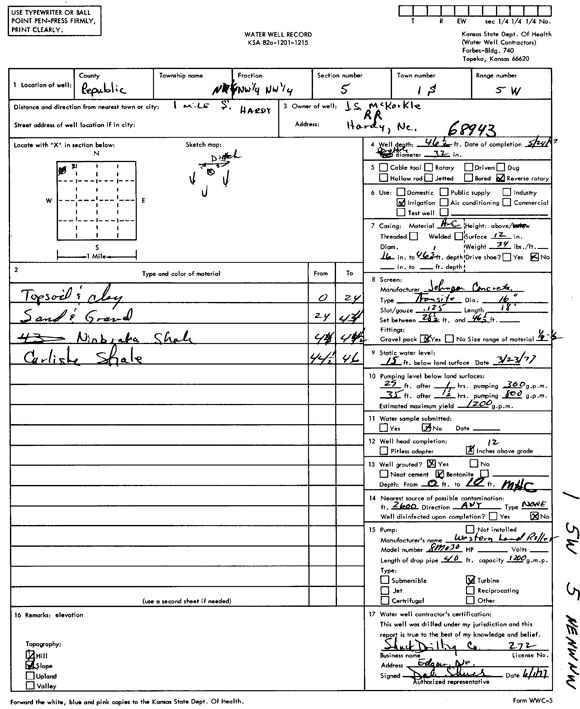 USE TYPEWRITER OR BALL
POINT PEN-PRESS FIRMLY,
PRINT CLEARLY.
WATER WELL RECORD
KSA 82a-1201-1215
T R EW sec 1/4 1/4 1/4 No.
Kansas State Dept. Of Health
(Water Well Contractors)
Forbes-Bldg. 740
Topeka, Kansas 66620
1 Location of well:
County
Republic
Township name
Fraction
NW¼ NW¼
Section number
5
Town number
1 S
Range number
5 W
Distance and direction from nearest town or city: 1 mile S. HARDY
Street address of well location if in city:
3 Owner of well: J.S. McKorkle
RR
Address: Hardy, Ne.
68943
Locate with "X" in section below:
N
W
E
S
1 Mile
Sketch map:
Ditch
4 Well depth: 46½ ft. Date of completion
diameter 32 in.
5 Cable tool Rotary Driven Dug
Hollow rod Jetted Bored Reverse rotary
6 Use: Domestic Public supply Industry
Irrigation Air conditioning Commercial
Test well
7 Casing: Material A-C Height: above/
Threaded Welded Surface 12 in.
Diam. Weight 34 lbs./ft.
16 in. to 46½ ft. depth Drive shoe? Yes No
in. to ft. depth
2 Type and color of material From To
Topsoil & clay 0 24
Sand & 24
Niobraka Shale
Carlishe Shale 44½ 46
(use a second sheet if needed)
8 Screen:
Manufacturer Johnson Concrete
Type Transite Dia. 16"
Slot/gauze .125 Length 18'
Set between 28½ ft. and 46½ ft.
Fittings:
Gravel pack Yes No Size range of material
9 Static water level:
15 ft. below land surface Date 3/23/77
10 Pumping level below land surfaces:
25 ft. after 1 hrs. pumping 300 g.p.m.
35 ft. after 1½ hrs. pumping 800 g.p.m.
Estimated maximum yield 1200 g.p.m.
11 Water sample submitted:
Yes No Date
12 Well head completion: 12
Pitless adapter Inches above grade
13 Well grouted? Yes No
Neat cement Bentonite
Depth: From 0 ft. to 10 ft. MHC
14 Nearest source of possible contamination:
ft. 2600 Direction ANY Type NONE
Well disinfected upon completion? Yes No
15 Pump: Not installed
Manufacturer's name Western Land Roller
Model number HP Volts
Length of drop pipe 40 ft. capacity 1200 g.m.p.
Type:
Submersible Turbine
Jet Reciprocating
Certrifugal Other
16 Remarks: elevation
Topography:
Hill
Slope
Upland
Valley
17 Water well contractor's certification:
This well was drilled under my jurisdiction and this
report is true to the best of my knowledge and belief.
Drilling Co. 272
Business name License No.
Address Edgar, Ne.
Signed Date
Authorized representative
1 5W 5 NENWNW
Forward the white, blue and pink copies to the Kansas State Dept. Of Health.
Form WWC-5